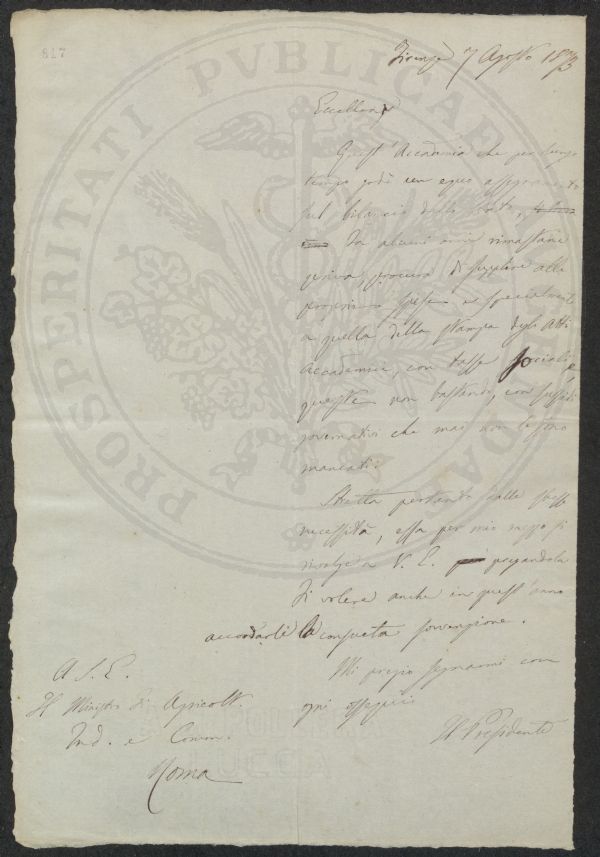 817
Firenze 7 Agosto 1873
Eccellenza
Quest'Accademia che per lungo
tempo godè un equo assegnamento
sul bilancio dello Stato,
Da alcuni anni rimastane
priva, procura di supplire alle
proprie spese e specialmente
a quella della stampa degli Atti
Accademici, con tasse sociali, e
queste non bastando, con sussidi
governativi che mai non le sono
mancati.
Stretta pertanto dalle stesse
necessità, essa per mio mezzo si
rivolge a V. E. pregandola
di volere anche in quest'anno
accordarle la consueta sovvenzione.
Mi pregio segnarmi con
ogni ossequio
Il Presidente
A S. E.
Il Ministro di Agricolt.
Ind. e Comm.
Roma
PROSPERITATI PVBLICAE AVGENDAE